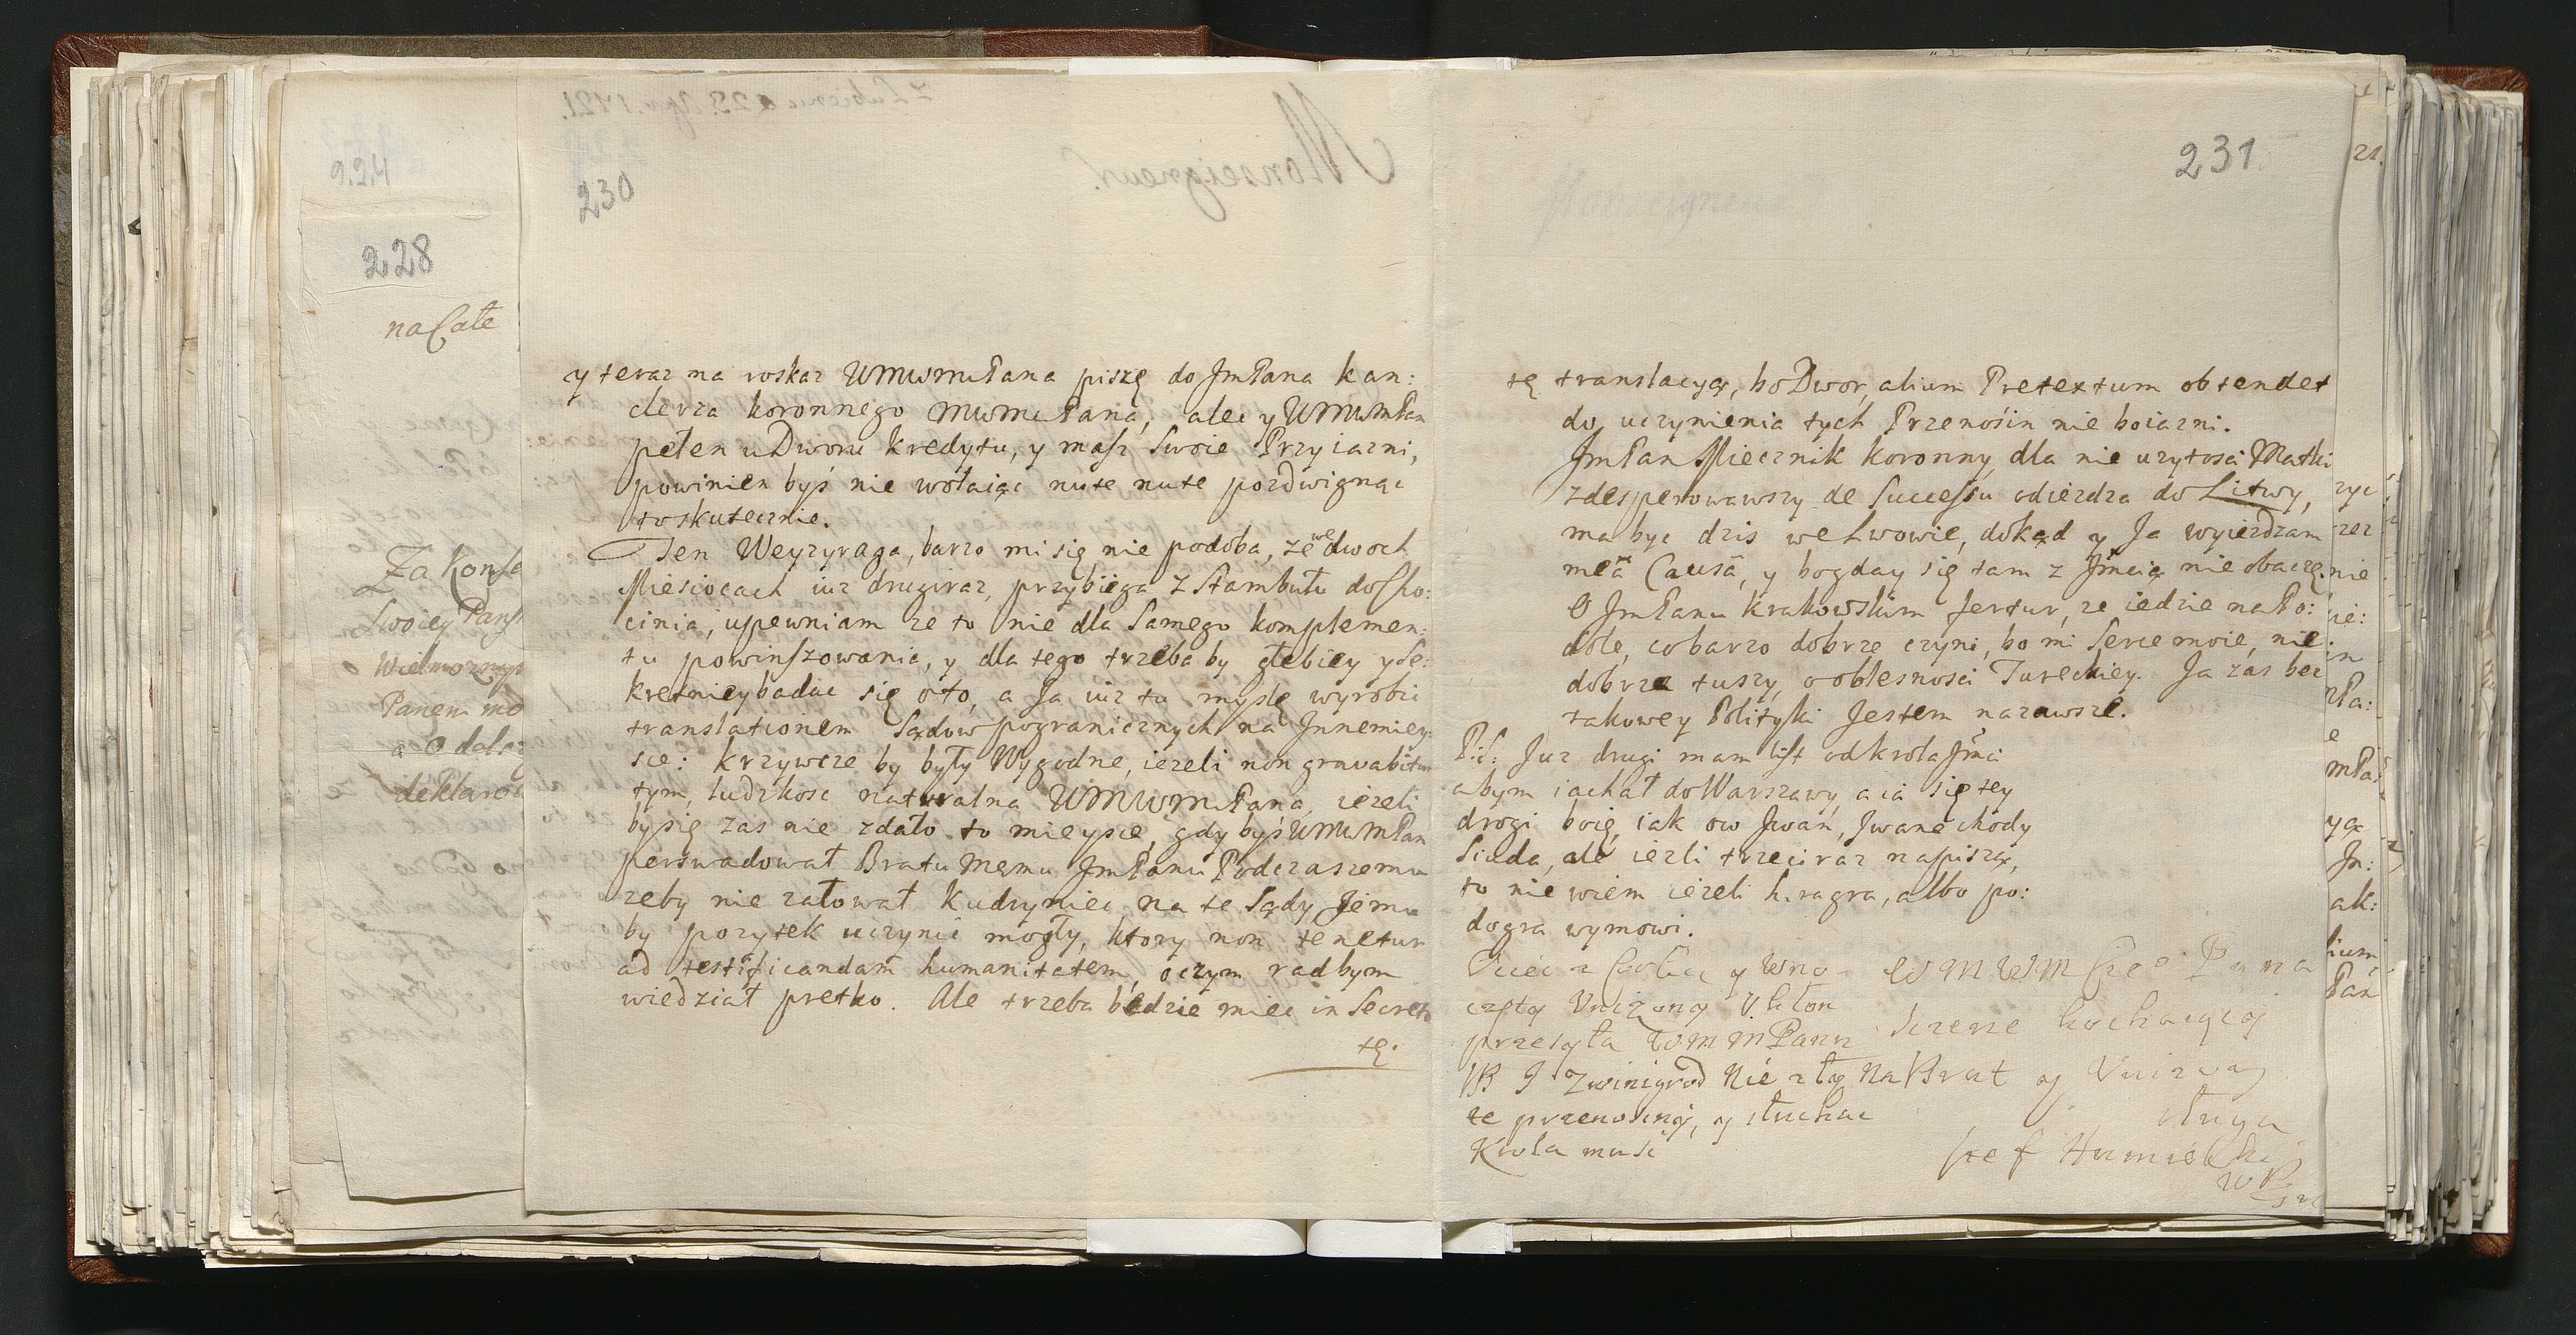 224
228
na Całe
Za Konse
Swoiey Pańs
Wielmoznys
Panem mo
a Odebr
deklaros
230
y teraz na roskaz WMWMPana piszę do JmPana Kan:
clerza koronnego MWMPana, alec y WMWMPan
pełen u Dworu kredytu, y masz Swoie Przyiazni,
powinien byś nie wołaiąc nuże nuże pozdwignąc
to skutecznie.
Ten Weyzyraga, barzo mi się nie podoba, ze we dwoch
Miesiącach iuz drugiraz, przybiega z Stambułu do Cho:
cimia, upewniam ze to nie dla Samego komplemen:
tu powinszowania, y dla tego trzeba by głebiey y Se:
kretniey badac się o to, a Ja iuz tu myslę wyrobic
translationem Sądow pogranicznych na Jnne miey:
sce: krzywcze by były Wygodne, iezeli non gravabitur
tym, ludzkosc naturalna WMWMPana, iezeli
by się zas nie zdało to mieysce, gdy byś WMWMPan
perswadował Bratu Memu JmPanu Podczaszemu
zeby nie załował Kudryniec na te Sądy Jemu
by pozytek uczynic mogły, ktory non tenetur
ad testificandam humanitatem, o czym rad bym
wiedział pretko. Ale trzeba będzie miec in Secreto
tę.
231
21.
tę translacyą, bo Dwor, alium Pretextum obtendet
do uczynienia tych Przenośin nie boiazni.
JmPan Miecznik koronny, dla nie uzytosci Matki
zdesperowawszy de Sucessu odiezdza do Litwy,
ma byc dzis we Lwowie, dokąd y Ja wyiezdzam
meâ Causâ, y bogday się tam z Jmcią nie obaczę.
O JmPanu Krakowskim fertur, ze iedzie na Po:
dole, co barzo dobrze czyni, bo mi Serce moie, nie
dobrze tuszy, o oblesnosci Tureckiey. Ja zas bez
takowey Polityki Jestem nazawsze.
P:S: Juz drugi mam list od krola Jmci
abym iachał do Warszawy, a ia się tey
drogi boię, iak ow Jwan, Jwane chody
Siuda, ale iezli trzeciraz napiszą,
to nie wiem iezeli hiragra, albo po:
dogra wymowi.
WMWM Pana
Unizony Ukłon
przesyła WMMPanu
Szczerze kochaiący
Zwinigrod Nie zły na
Brat y Unizony
te przenosiny, y słuchac
sługa
Krola musi
Stef Humiecki
WP